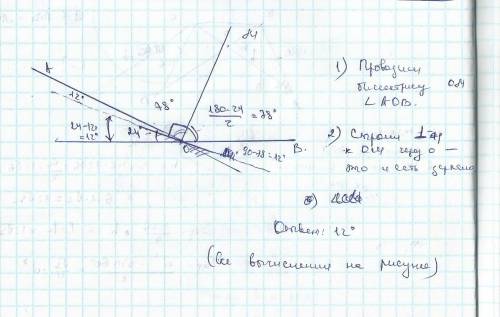 M
1) Проводим
биссектрису OM
∠ AOB.
A
12°
78°
180-24/2 = 78°
24-12
= 12°
24°
O
B.
90-78=12°
2) Строим ⊥
к OM через O —
это и есть зеркало
3)
Ответ: 12°
(все вычисления на рисунке)